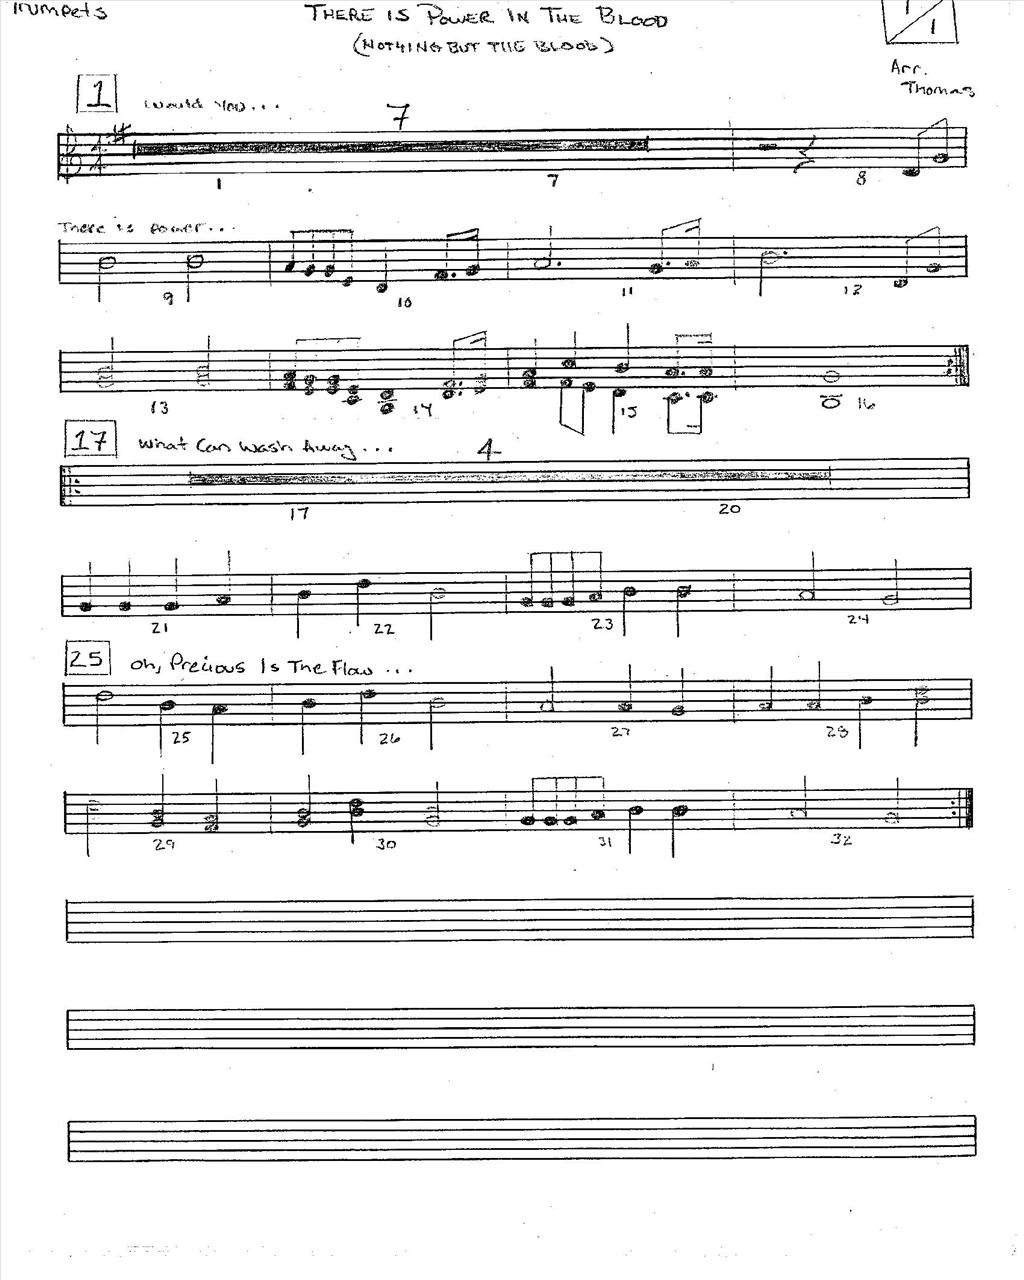 Trumpets
THERE IS POWER IN THE BLOOD
(NOTHING BUT THE BLOOD)
1
1
Arr.
Thomas
1 Would You...
7
4
4
1 7 8
There is Power...
9 10 11 12
13 14 15 16
17 What Can Wash Away... 4
17 20
21 22 23 24
25 Oh, Precious Is The Flow...
25 26 27 28
29 30 31 32